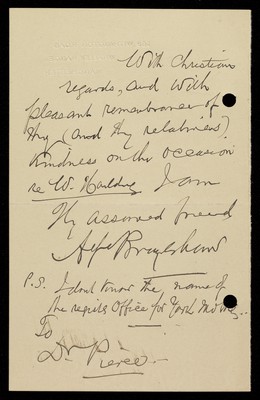 With Christian
regards, and with
pleasant remembrance of
thy (and thy relatives)
kindness on the occasion
re W. I am
Thy assured friend
Alfd Brayshaw
P.S. I don't know the name of
the Office for York
To
Dr. Pierce.